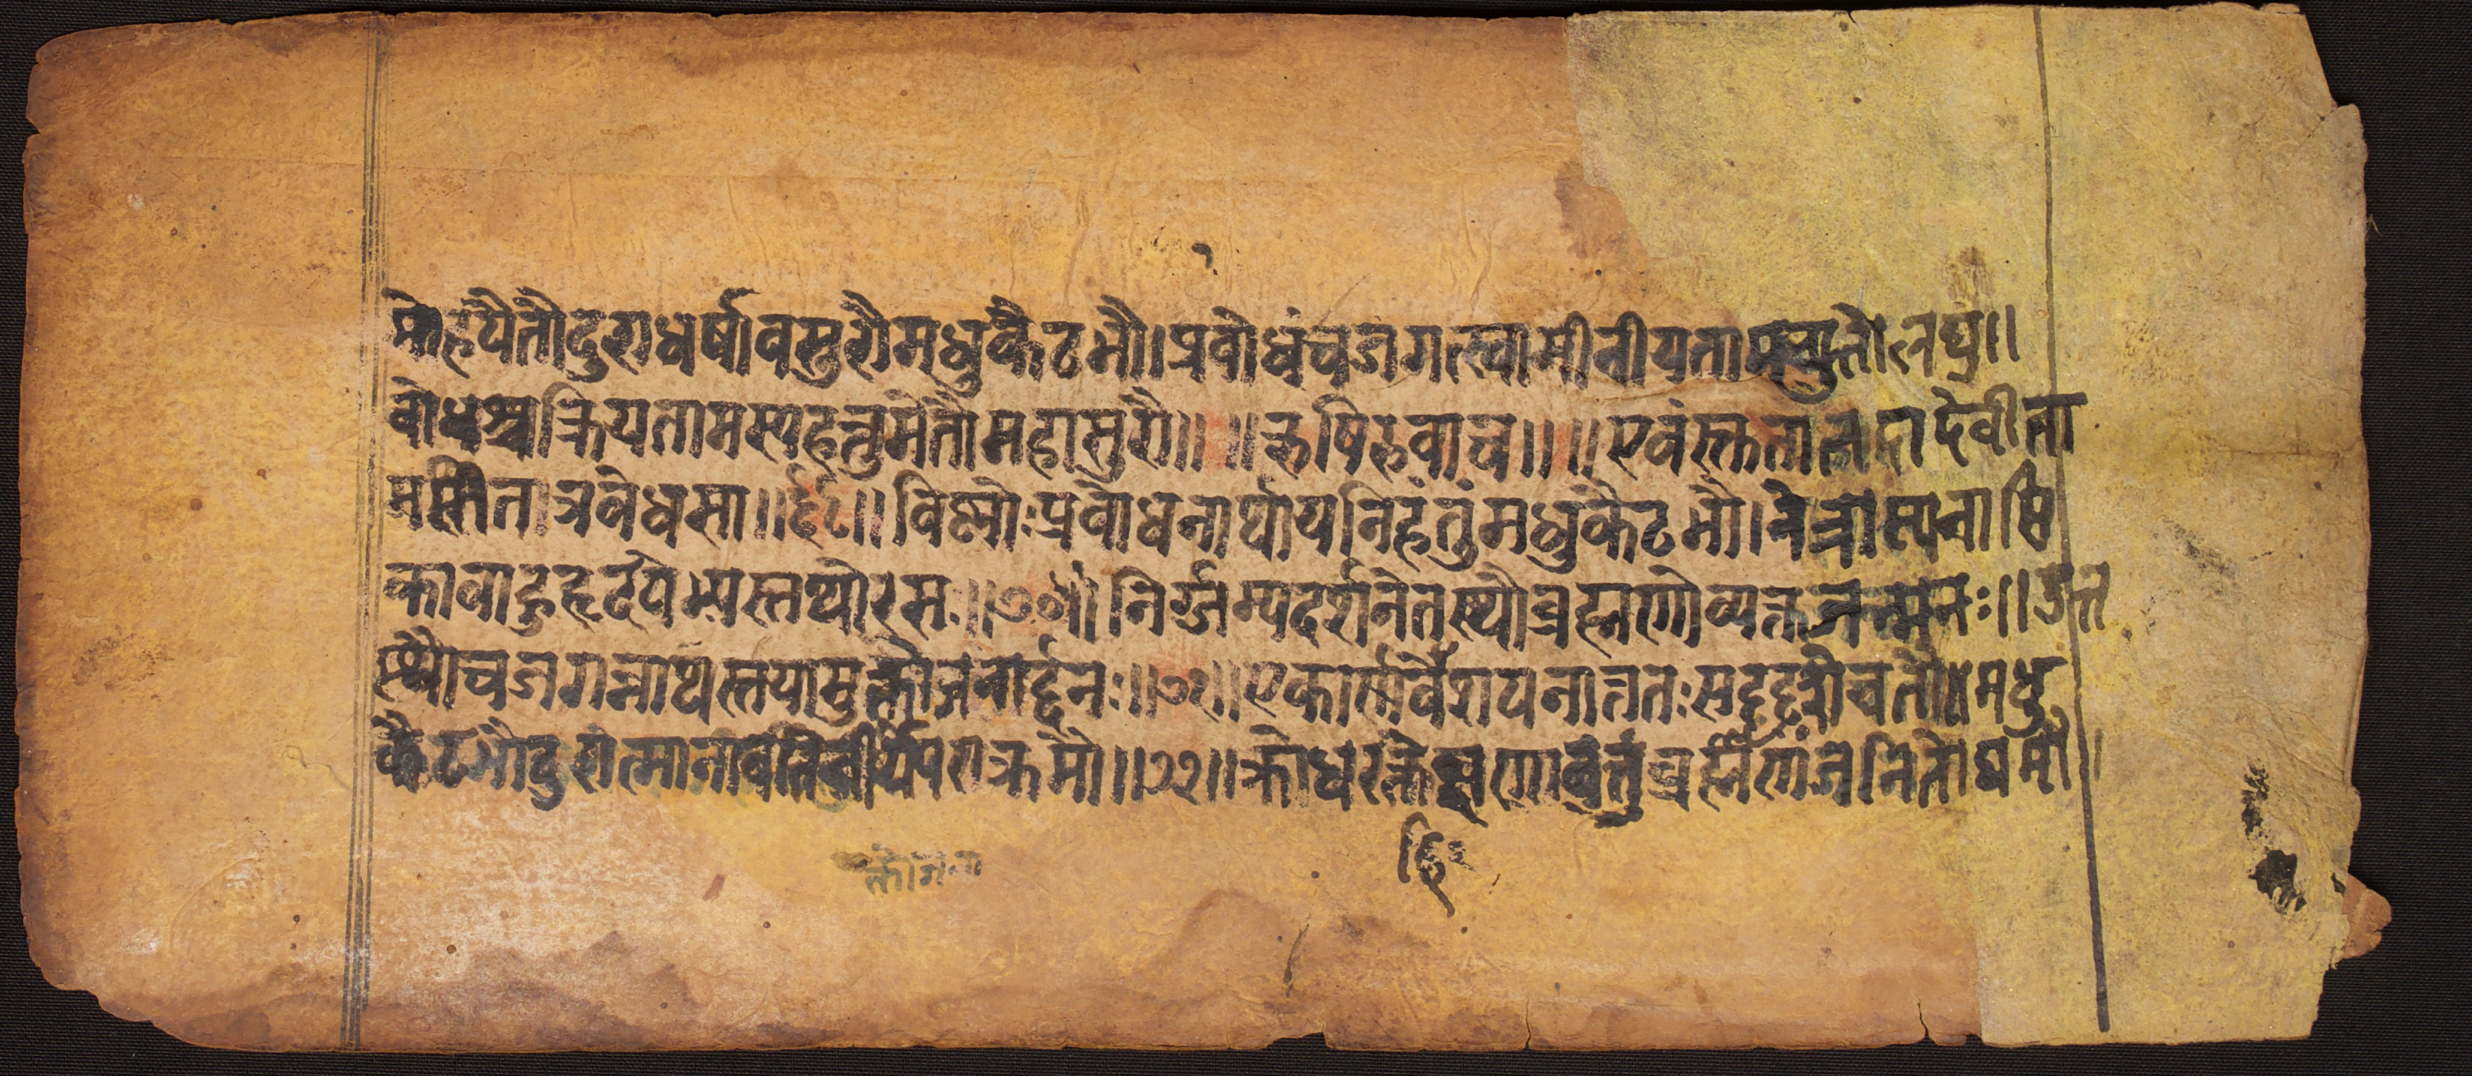 मोहयैतौदुराधर्षावसुरौमधुकैटभौ।प्रबोधंचजगत्स्वामीनीयतामच्युतोलघु॥
बोधश्चक्रियतामस्यहन्तुमेतौमहासुरौ॥ ॥ऋषिरुवाच॥ ॥एवंस्तुतातदादेवीता
मसीतत्रवेधसा॥६८॥विष्णोःप्रबोधनार्थायनिहंतुंमधुकैटभौ।नेत्रास्यनासि
काबाहुहृदयेभ्यस्तथोरसः॥७०॥निर्गम्यदर्शनेतस्थौब्रह्मणोव्यक्तजन्मनः॥उत्त
स्थौचजगन्नाथस्तयामुक्तोजनार्द्दनः॥७१॥एकार्णवेशयनात्ततःसददृशेचतौ॥मधु
कैटभौदुरात्मानावतिवीर्यपराक्रमौ॥७२॥क्रोधरक्तेक्षणावत्तुंब्रह्माणंजनितोद्यमौ।